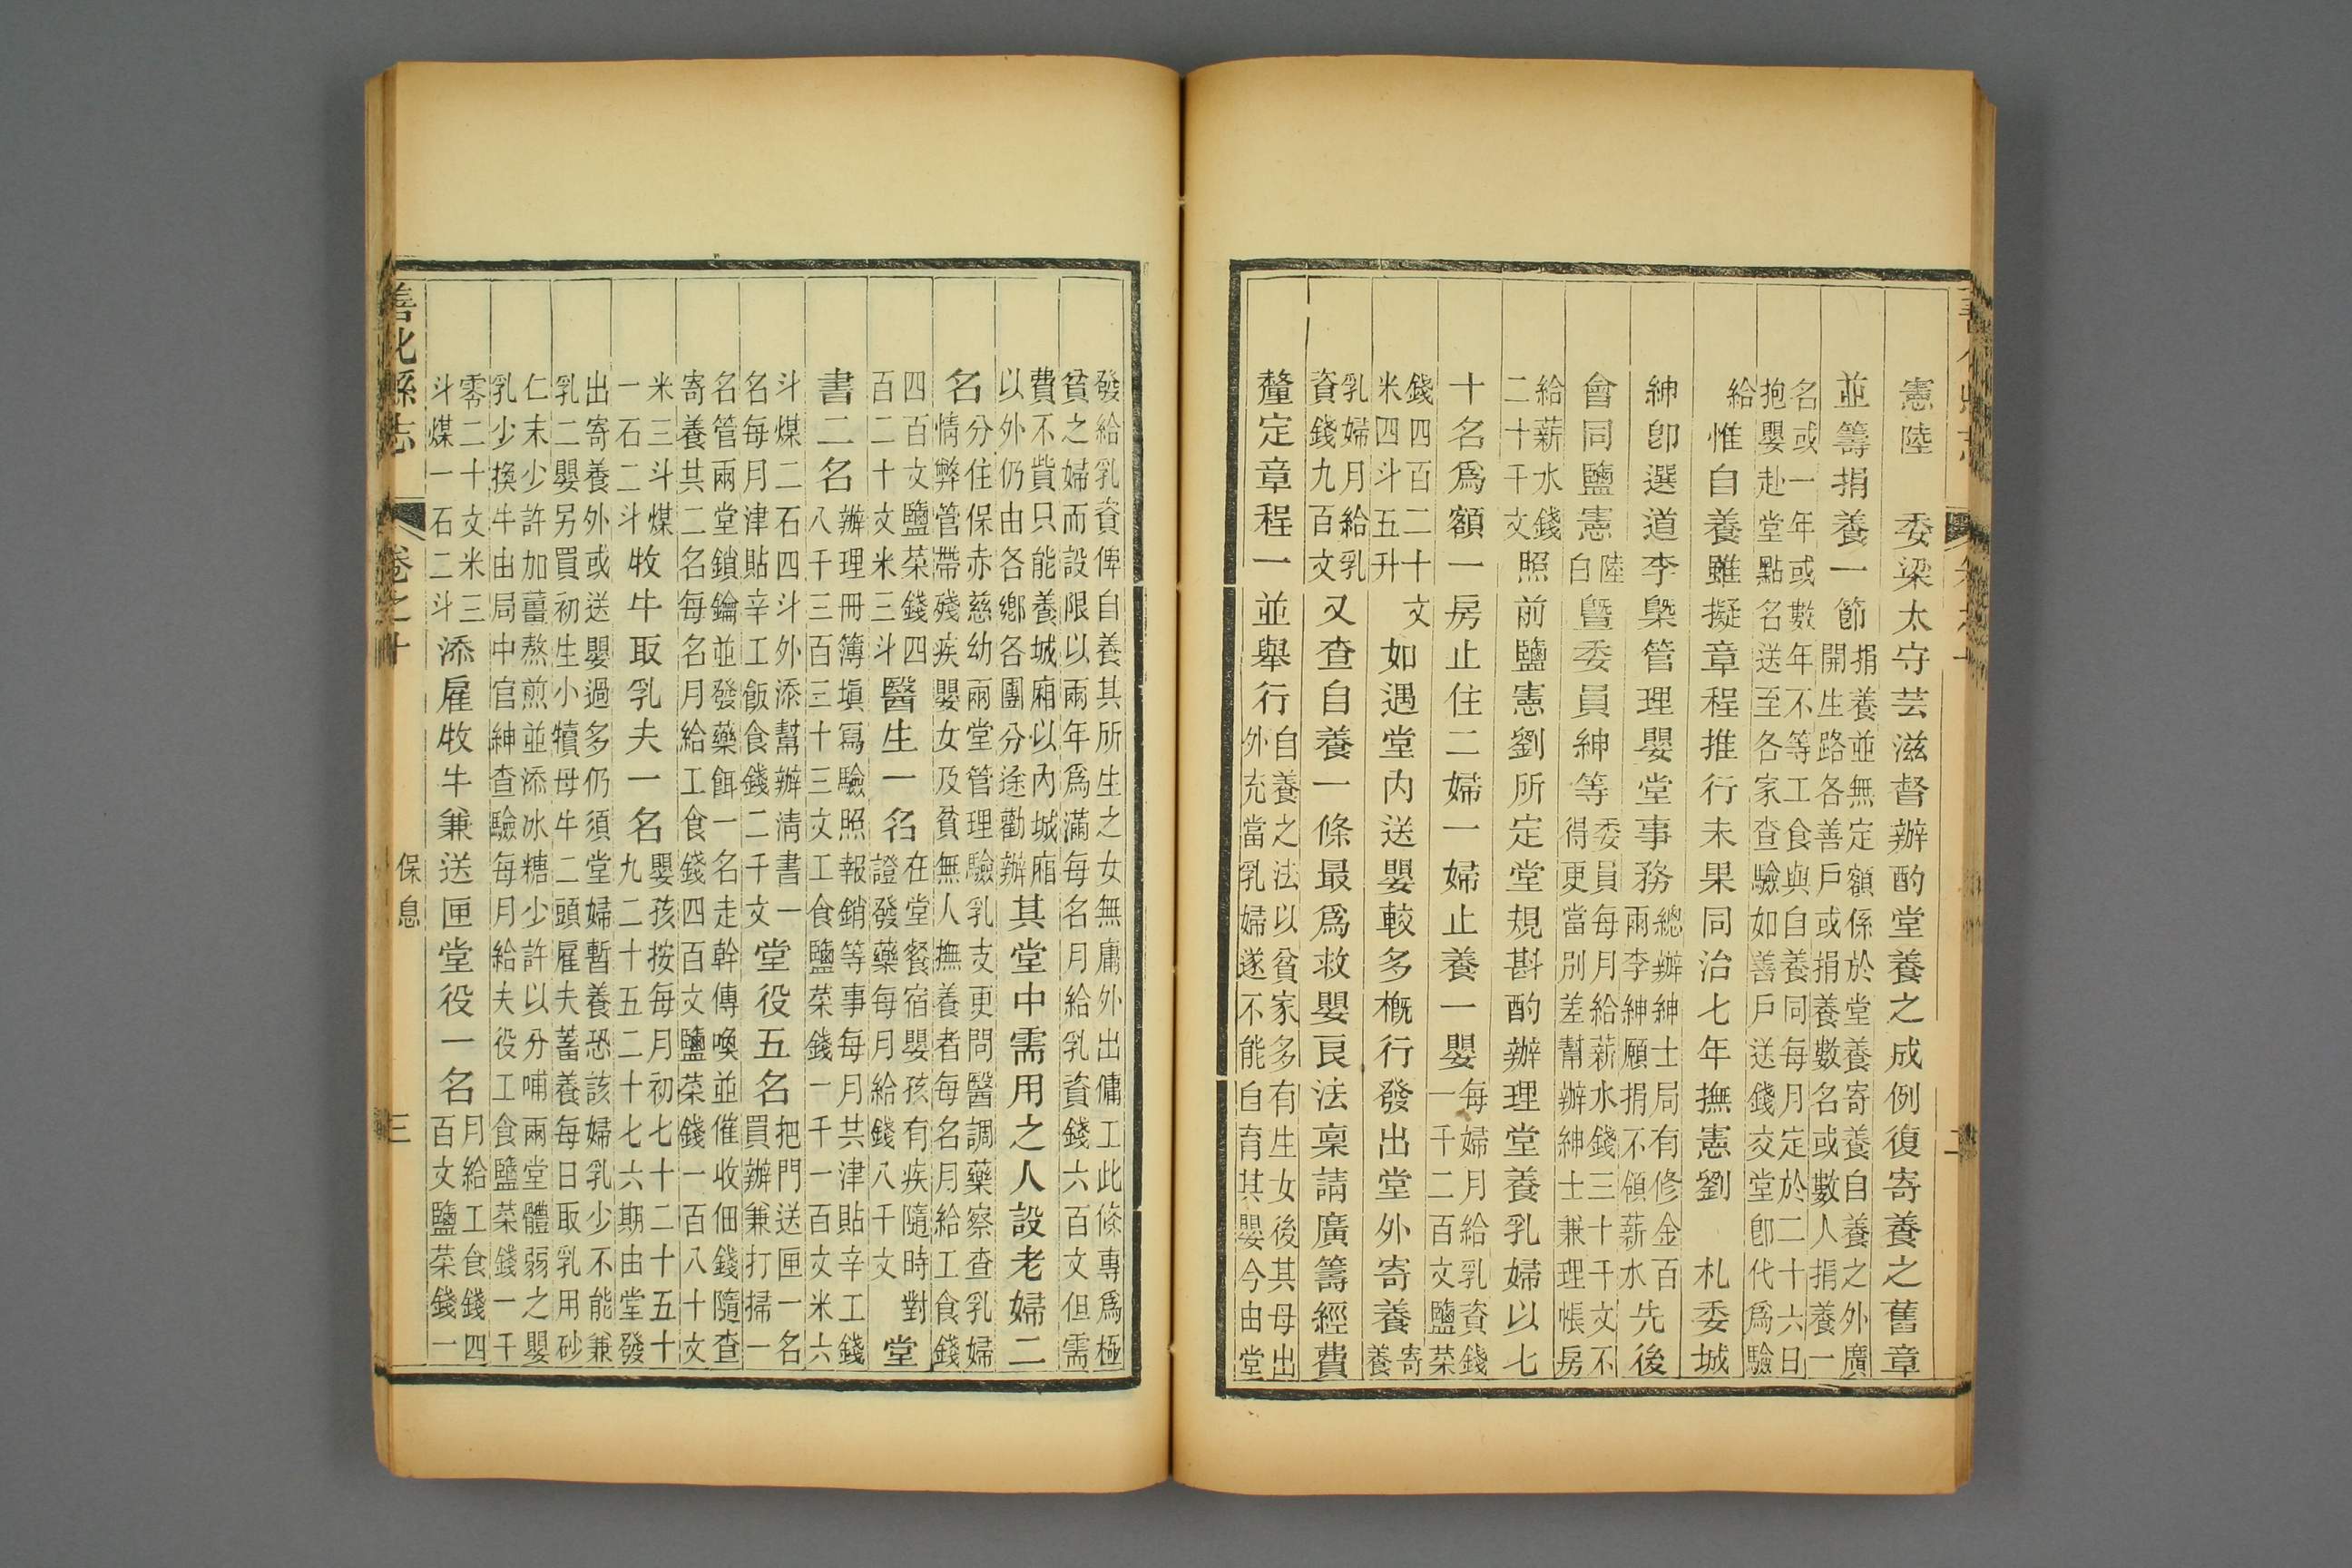 憲陸　委梁太守芸滋督辦酌堂養之成例復寄養之舊章
並籌捐養一節捐養並無定額係於堂養寄養自養之外廣開生路各善戶或捐養數名或數人捐養一
名或一年或數年不等工食與自養同每月定於二十六日抱嬰赴堂點名送至各家查驗如善戶送錢交堂卽代爲驗
給惟自養雖擬章程推行未果同治七年撫憲劉　札委城
紳卽選道李槼管理嬰堂事務總辦紳士局有修金百兩李紳願捐不領薪水先後
會同鹽憲陸白曁委員紳等委員每月給薪水錢三十千文不得更當別差幫辦紳士兼理帳房
給薪水錢二十千文照前鹽憲劉所定堂規斟酌辦理堂養乳婦以七
十名爲額一房止住二婦一婦止養一嬰每婦月給乳資錢一千二百文鹽菜
錢四百二十文米四斗五升如遇堂內送嬰較多概行發出堂外寄養寄養
乳婦月給乳資錢九百文又查自養一條最爲救嬰良法稟請廣籌經費
釐定章程一並舉行自養之法以貧家多有生女後其母出外充當乳婦遂不能自育其嬰今由堂
發給乳資俾自養其所生之女無庸外出傭工此條專爲極貧之婦而設限以兩年爲滿每名月給乳資錢六百文但需
費不貲只能養城廂以內城廂以外仍由各鄉各團分途勸辦其堂中需用之人設老婦二
名分住保赤慈幼兩堂管理驗乳支更問醫調藥察查乳婦情弊管帶殘疾嬰女及貧無人撫養者每名月給工食錢
四百文鹽菜錢四百二十文米三斗醫生一名在堂餐宿嬰孩有疾隨時對證發藥每月給錢八千文堂
書二名辦理冊簿塡寫驗照報銷等事每月共津貼辛工錢八千三百三十三文工食鹽菜錢一千一百文米六
斗煤二石四斗外添幫辦清書一名每月津貼辛工飯食錢二千文堂役五名把門送匣一名買辦兼打掃一
名管兩堂鎖鑰並發藥餌一名走幹傳喚並催收佃錢隨查寄養共二名每名月給工食錢四百文鹽菜錢一百八十文
米三斗煤一石二斗牧牛取乳夫一名嬰孩按每月初七十二十五十九二十五二十七六期由堂發
出寄養外或送嬰過多仍須堂婦暫養恐該婦乳少不能兼乳二嬰另買初生小犢母牛二頭雇夫蓄養每日取乳用砂
仁末少許加薑熬煎並添冰糖少許以分哺兩堂體弱之嬰乳少換牛由局中官紳查驗每月給夫役工食鹽菜錢一千
零二十文米三斗煤一石二斗添雇牧牛兼送匣堂役一名月給工食錢四百文鹽菜錢一
善化縣志　卷之十　保息　三